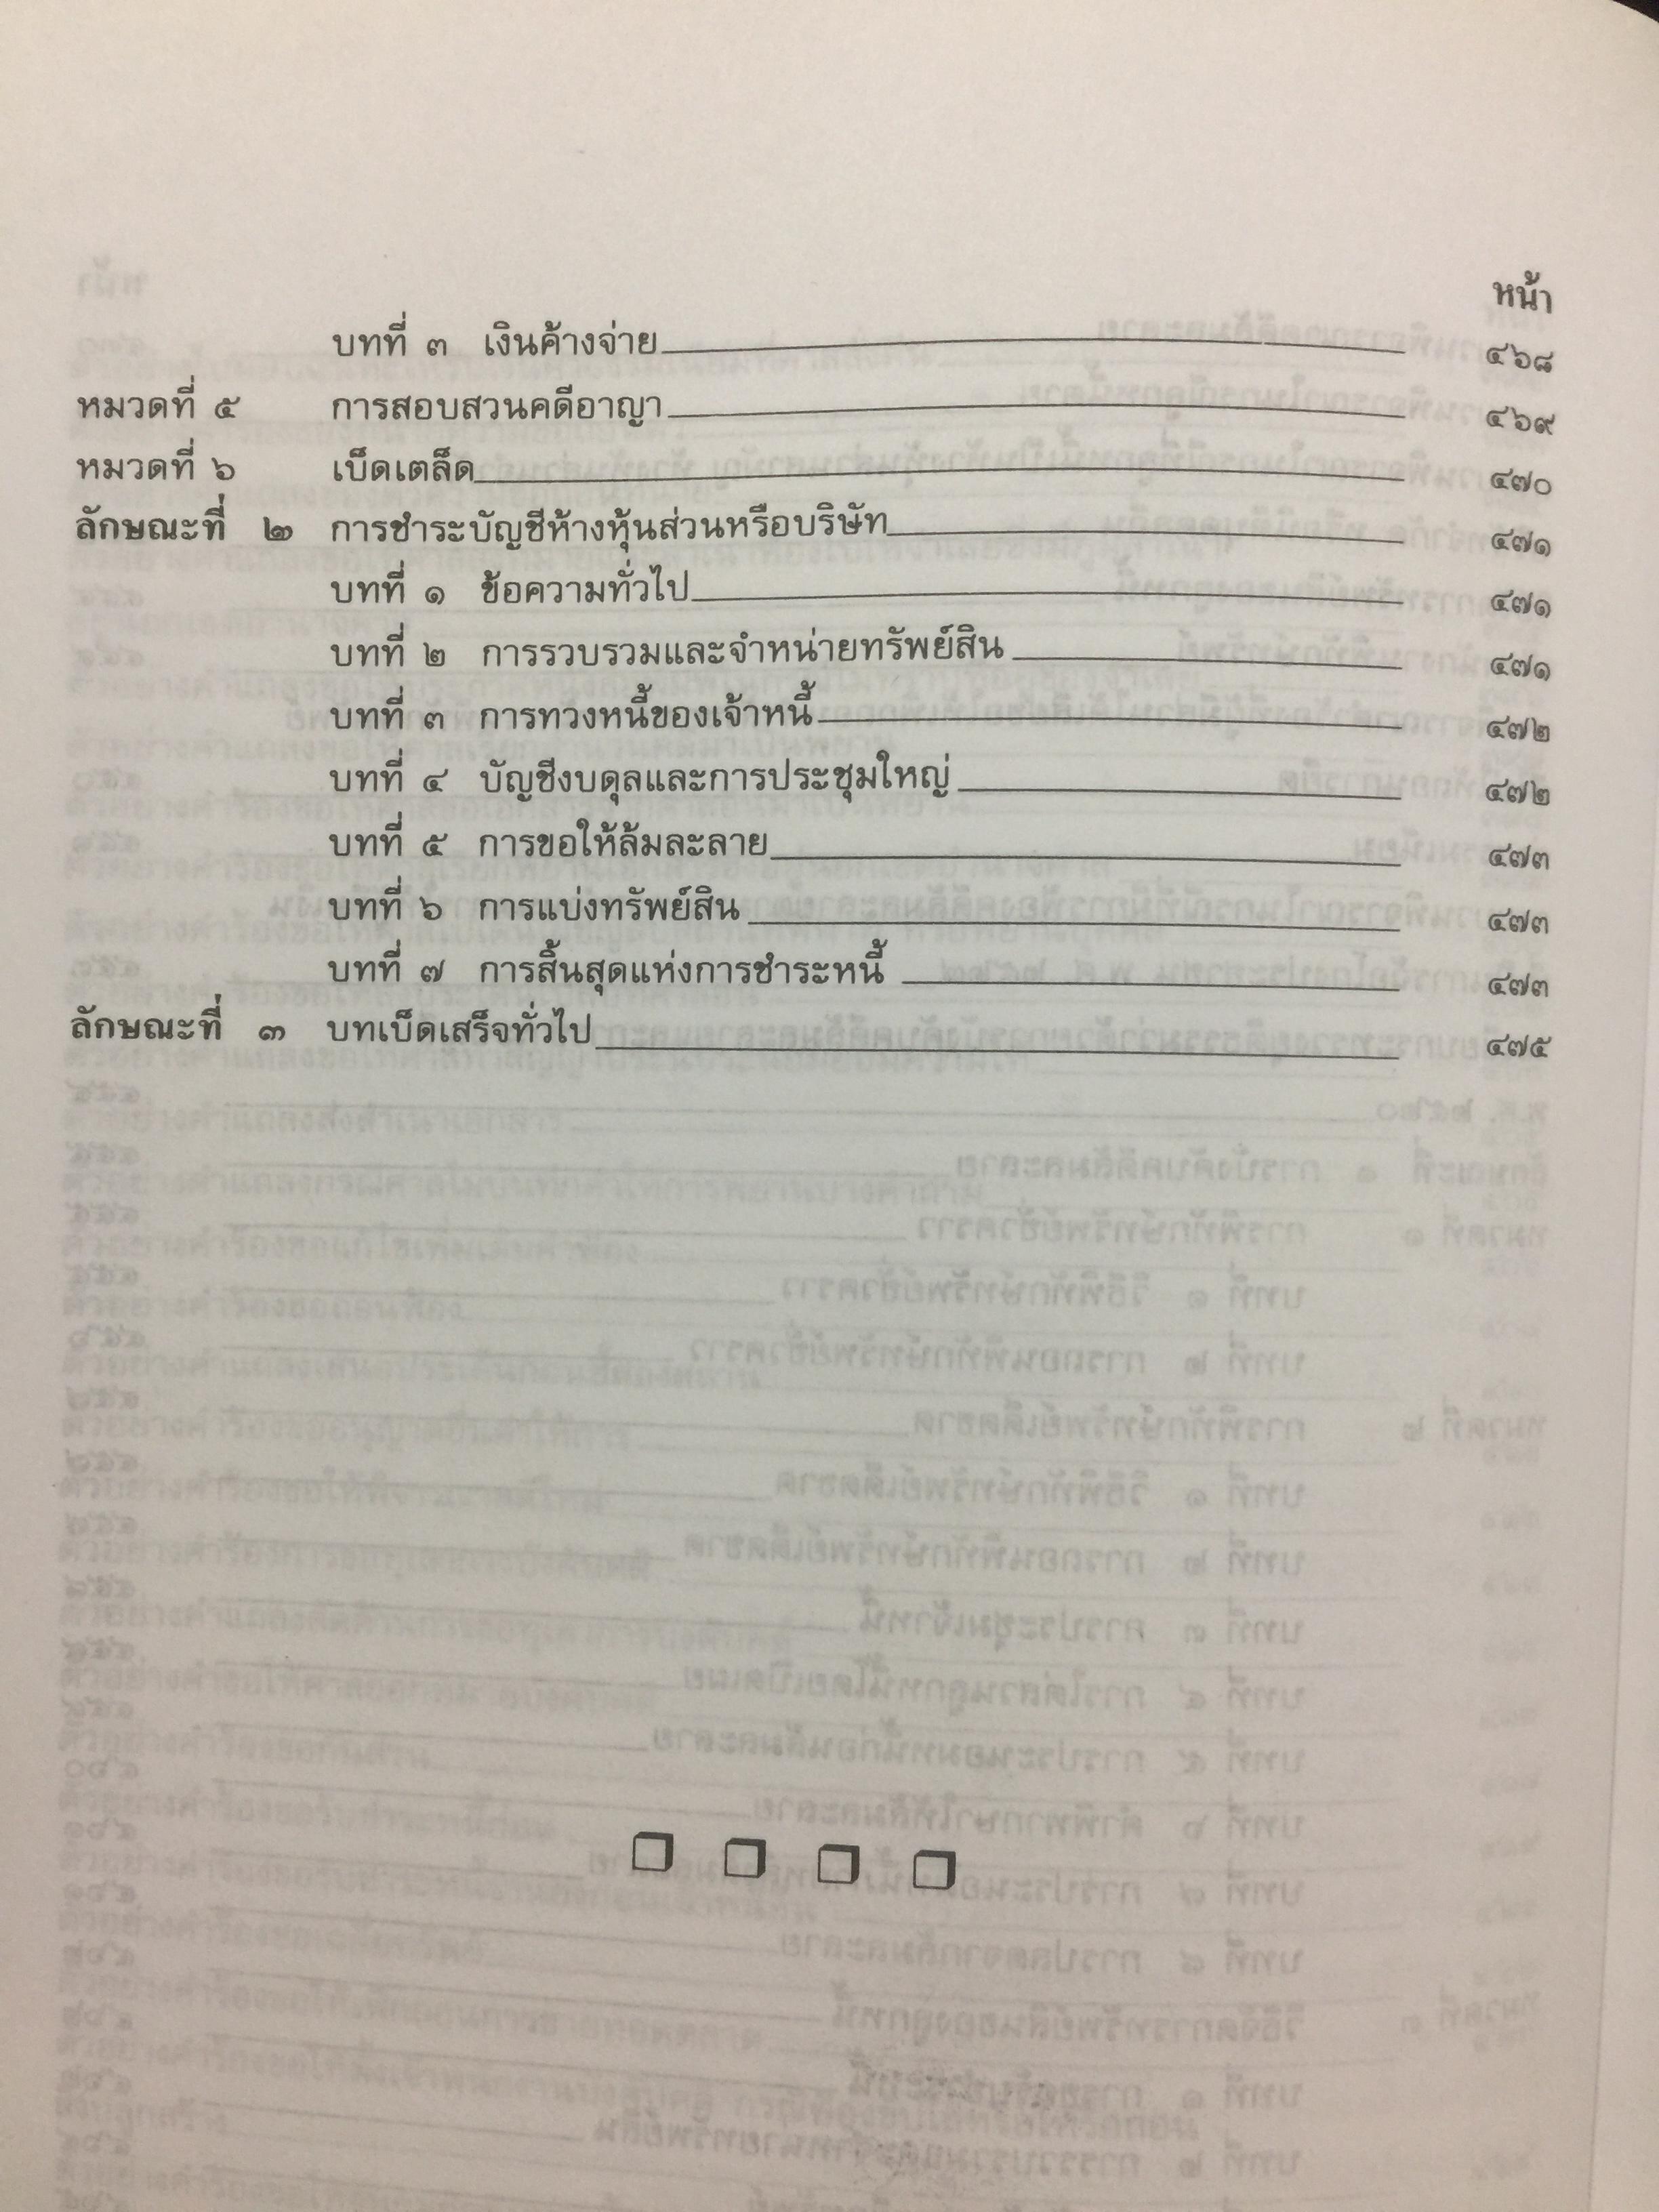 หน้า
บทที่ ๓ เงินค้างจ่าย ๔๖๘
หมวดที่ ๕ การสอบสวนคดีอาญา ๔๖๙
หมวดที่ ๖ เบ็ดเตล็ด ๔๗๐
ลักษณะที่ ๒ การชำระบัญชีห้างหุ้นส่วนหรือบริษัท ๔๗๑
บทที่ ๑ ข้อความทั่วไป ๔๗๑
บทที่ ๒ การรวบรวมและจำหน่ายทรัพย์สิน ๔๗๑
บทที่ ๓ การทวงหนี้ของเจ้าหนี้ ๔๗๒
บทที่ ๔ บัญชีงบดุลและการประชุมใหญ่ ๔๗๒
บทที่ ๕ การขอให้ล้มละลาย ๔๗๓
บทที่ ๖ การแบ่งทรัพย์สิน ๔๗๓
บทที่ ๗ การสิ้นสุดแห่งการชำระหนี้ ๔๗๓
ลักษณะที่ ๓ บทเบ็ดเสร็จทั่วไป ๔๗๕